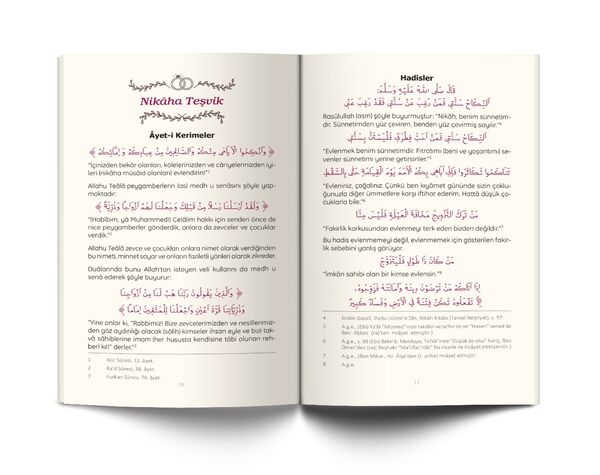 Nikâha Teşvik
Âyet-i Kerimeler
﴿ وَاَنْكِحُوا الْاَيَامٰى مِنْكُمْ وَالصَّالِح۪ينَ مِنْ عِبَادِكُمْ وَاِمَٓائِكُمْ ﴾
"İçinizden bekâr olanları, kölelerinizden ve câriyelerinizden iyi-
leri (nikâha müsâid olanları) evlendirin!"¹
Allahu Teâlâ peygamberlerin (as) medh u senâsını şöyle yap-
maktadır:
﴿ وَلَقَدْ اَرْسَلْنَا رُسُلًا مِنْ قَبْلِكَ وَجَعَلْنَا لَهُمْ اَزْوَاجًا وَذُرِّيَّةً ﴾
"(Habîbim, yâ Muhammed!) Celâlim hakki için senden önce de
nice peygamberler gönderdik, onlara da zevceler ve çocuklar
verdik."²
Allahu Teâlâ zevce ve çocukları onlara nimet olarak verdiğinden
bu nimeti, minnet sayar ve onların faziletli yönleri olarak zikreder.
Dualarında bunu Allah'tan isteyen veli kullarını da medh u
senâ ederek şöyle buyurur:
﴿ وَالَّذ۪ينَ يَقُولُونَ رَبَّنَا هَبْ لَنَا مِنْ اَزْوَاجِنَا
وَذُرِّيَّاتِنَا قُرَّةَ اَعْيُنٍ وَاجْعَلْنَا لِلْمُتَّق۪ينَ اِمَامًا ﴾
"Yine onlar ki, "Rabbimiz! Bize zevcelerimizden ve nesillerimiz-
den göz aydınlığı olacak (sâlih) kimseler ihsan eyle ve bizi tak-
vâ sâhiblerine imam (her hususta kendisine tâbi olunan reh-
ber) kıl!" derler."³
1 Nûr Sûresi, 32. âyet.
2 Ra'd Sûresi, 38. âyet.
3 Furkan Sûresi, 74. âyet.
10
Hadisler
قَالَ صَلَّى اللهُ عَلَيْهِ وَسَلَّمَ:
اَلنِّكَاحُ سُنَّتِي فَمَنْ رَغِبَ عَنْ سُنَّتِي فَقَدْ رَغِبَ عَنِّي
Rasûlullah (asm) şöyle buyurmuştur: "Nikâh, benim sünnetim-
dir. Sünnetimden yüz çeviren, benden yüz çevirmiş sayılır."⁴
اَلنِّكَاحُ سُنَّتِي فَمَنْ اَحَبَّ فِطْرَتِي فَلْيَسْتَنَّ بِسُنَّتِي
"Evlenmek benim sünnetimdir. Fıtratımı (beni ve yaşantımı) se-
venler sünnetimi yerine getirsinler."⁵
تَنَاكَحُوا تَكَاثَرُوا فَاِنِّي اُبَاهِي بِكُمُ الْاُمَمَ يَوْمَ الْقِيَامَةِ حَتَّى بِالسَّقْطِ
"Evleniniz, çoğalınız. Çünkü ben kıyâmet gününde sizin çoklu-
ğunuzla diğer ümmetlere karşı iftihar ederim. Hattâ düşük ço-
cuklarla bile."⁶
مَنْ تَرَكَ التَّزْوِيجَ مَخَافَةَ الْعَيْلَةِ فَلَيْسَ مِنَّا
"Fakirlik korkusundan evlenmeyi terk eden bizden değildir."⁷
Bu hadis evlenmemeyi değil, evlenmemek için gösterilen fakir-
lik sebebini yanlış görüyor.
مَنْ كَانَ ذَا طَوْلٍ فَلْيَتَزَوَّجْ
"İmkân sahibi olan bir kimse evlensin."⁸
اِذَا اَتَاكُمْ مَنْ تَرْضَوْنَ دِينَهُ وَاَمَانَتَهُ فَزَوِّجُوهُ.
اِلَّا تَفْعَلُوهُ تَكُنْ فِتْنَةٌ فِي الْاَرْضِ وَفَسَادٌ كَبِيرٌ
4 İmâm Gazalî, İhyâu Ulûmi'd-Dîn, Nikâh Kitâbı (Temel Neşriyat), s. 97.
5 A.g.e.,
6 A.g.e., s. 98
7 A.g.e.,
8 A.g.e
11